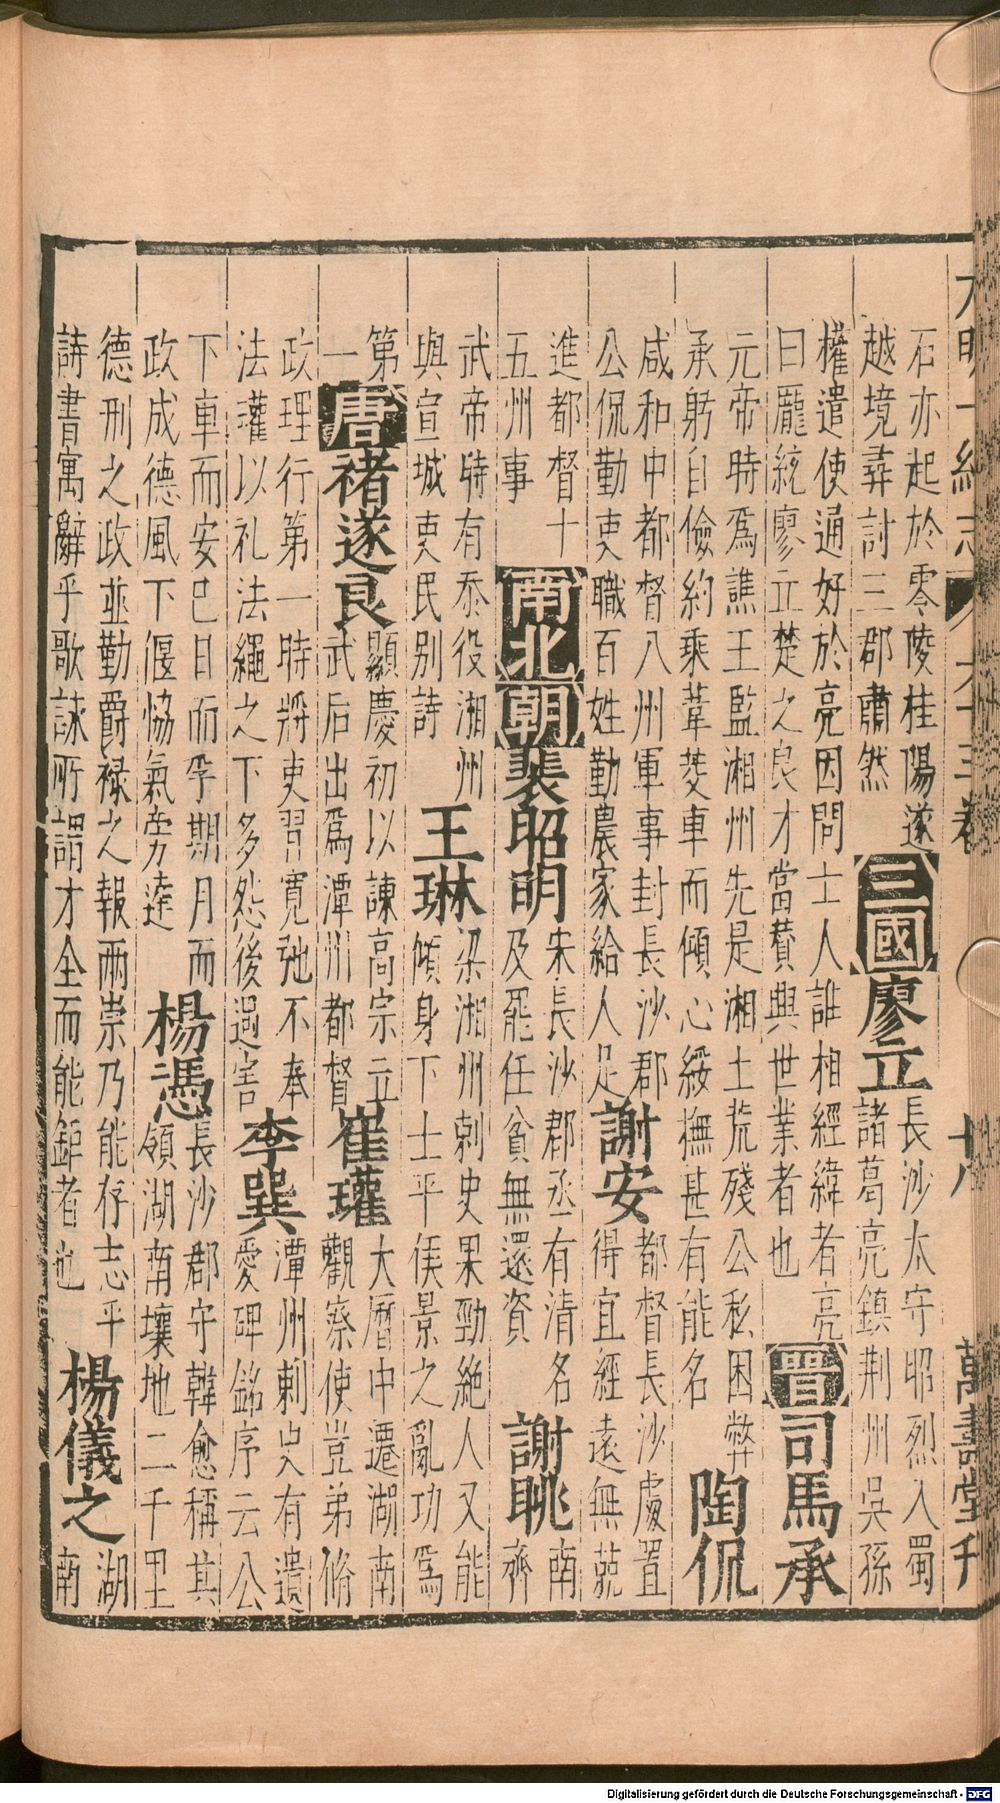 大明一統志 六十三卷 十八 萬壽堂刊
石亦起於零陵桂陽遂
越境尋討三郡肅然
三國
廖立
長沙太守昭烈入蜀
諸葛亮鎮荊州吳孫
權遣使通好於亮因問士人誰相經緯者亮
曰龐統廖立楚之良才當贊與世業者也
晉
司馬承
元帝時爲譙王監湘州先是湘土荒殘公私困弊
承躬自儉約乘葦茭車而傾心綏撫甚有能名
陶侃
咸和中都督八州軍事封長沙郡
公侃勤吏職百姓勤農家給人足
謝安
都督長沙處置
得宜經遠無競
進都督十
五州事
南北朝
裴昭明
宋長沙郡丞有清名
及罷任貧無還資
謝朓
南
齊
武帝時有忝役湘州
與宣城吏民別詩
王琳
梁湘州刺史果勁絶人又能
傾身下士平侯景之亂功爲
第
一
唐
褚遂良
顯慶初以諫高宗立
武后出爲潭州都督
崔瓘
大曆中遷湖南
觀察使豈弟脩
政理行第一時將吏習寬弛不奉
法瓘以礼法繩之下多怨後遇害
李巽
潭州刺史有遺
愛碑銘序云公
下車而安已日而孚期月而
政成德風下偃恊氣旁達
楊憑
長沙郡守韓愈稱其
領湖南壤地二千里
德刑之政並勤爵禄之報兩崇乃能存志乎
詩書寓辭乎歌詠所謂才全而能鉅者也
楊儀之
湖
南
Digitalisierung gefördert durch die Deutsche Forschungsgemeinschaft - DFG